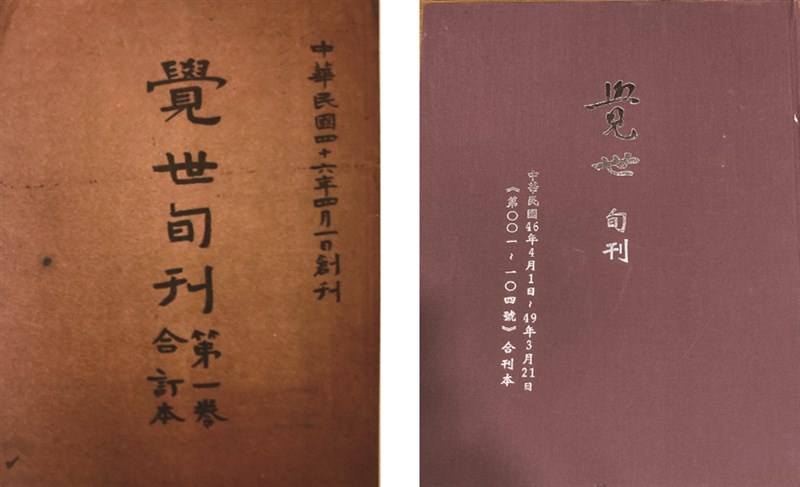 中華民國四十六年四月一日創刊
覺世旬刊
第一卷
合訂本
覺世旬刊
中華民國46年4月1日~49年3月21日
《第〇〇一~一〇四號》合刊本